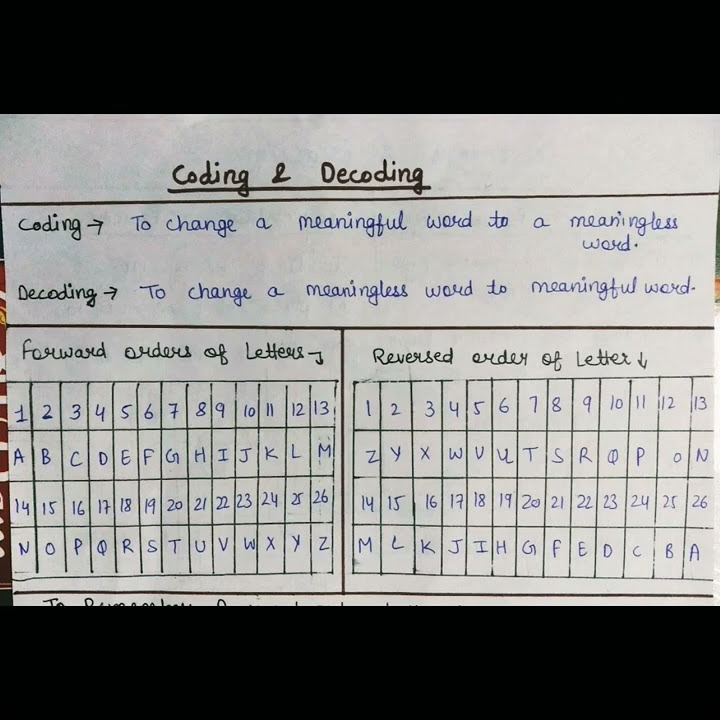 Coding & Decoding
Coding → To change a meaningful word to a meaningless
word.
Decoding → To change a meaningless word to meaningful word.
Forward orders of Letters
1 2 3 4 5 6 7 8 9 10 11 12 13
A B C D E F G H I J K L M
14 15 16 17 18 19 20 21 22 23 24 25 26
N O P Q R S T U V W X Y Z
Reversed order of Letter ↓
1 2 3 4 5 6 7 8 9 10 11 12 13
Z Y X W V U T S R Q P O N
14 15 16 17 18 19 20 21 22 23 24 25 26
M L K J I H G F E D C B A
To Remember